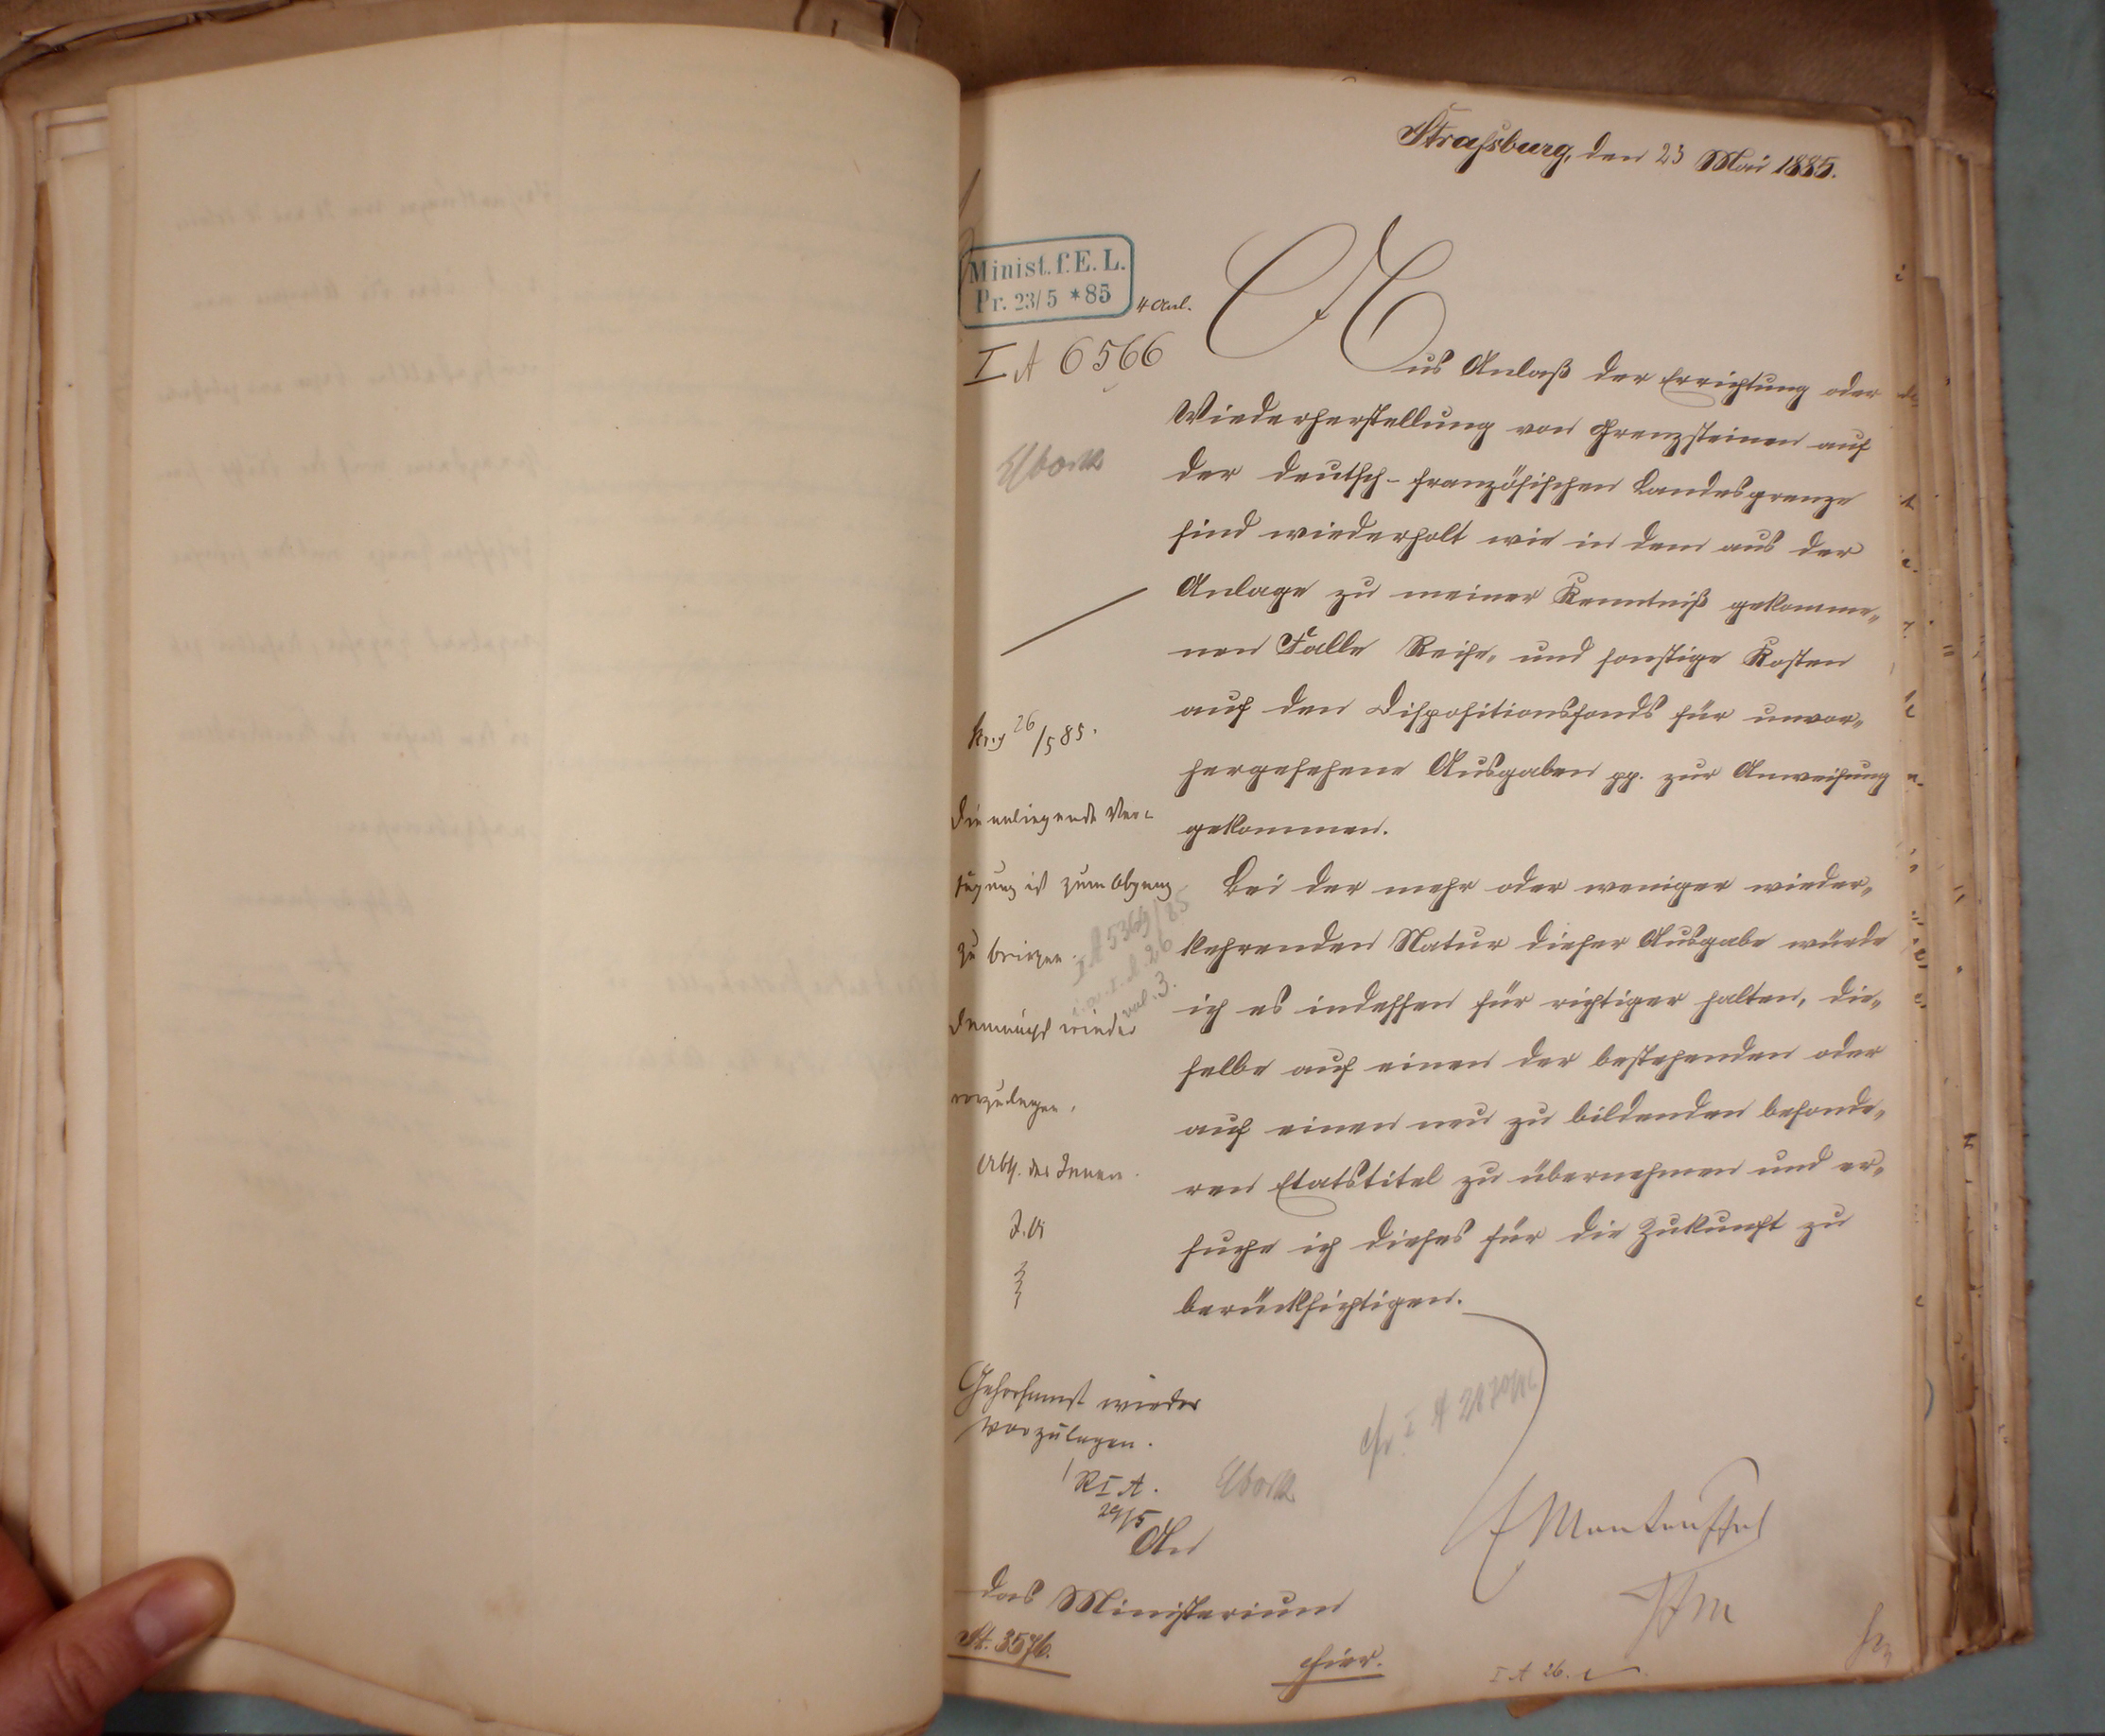 Straßburg, den 23 Mai 1885.
Minist. f. E. L.
Pr. 23/5 * 85
4 Anl.
I A 6566
Aus Anlaß der Errichtung oder
Wiederherstellung von Grenzsteinen auf
der deutsch-französischen Landesgrenze
sind wiederholt wie in dem aus der
Anlage zu meiner Kenntniß gekomme-
nen Falle Reise- und sonstige Kosten
auf den Dispositionsfonds für unvor-
hergesehene Ausgaben pp. zur Anweisung
gekommen.
Bei der mehr oder weniger wieder-
kehrenden Natur dieser Ausgabe würde
ich es indessen für richtiger halten, die-
selbe auf einen der bestehenden oder
auf einen neu zu bildenden besonde-
ren Etatstitel zu übernehmen und er-
suche ich dieses für die Zukunft zu
berücksichtigen.
26/5 85.
Die anliegende Ver-
fügung ist zum Abgang
zu bringen.
Demnächst wieder
vorzulegen.
Abth. des Innern
I. A
I. A 5369/85
vol. 3.
Gehorsamst wieder
vorzulegen.
R I A.
29/5
cfr. I A
E Manteuffel
An
das Ministerium
St. 3576.
hier.
I A 26.